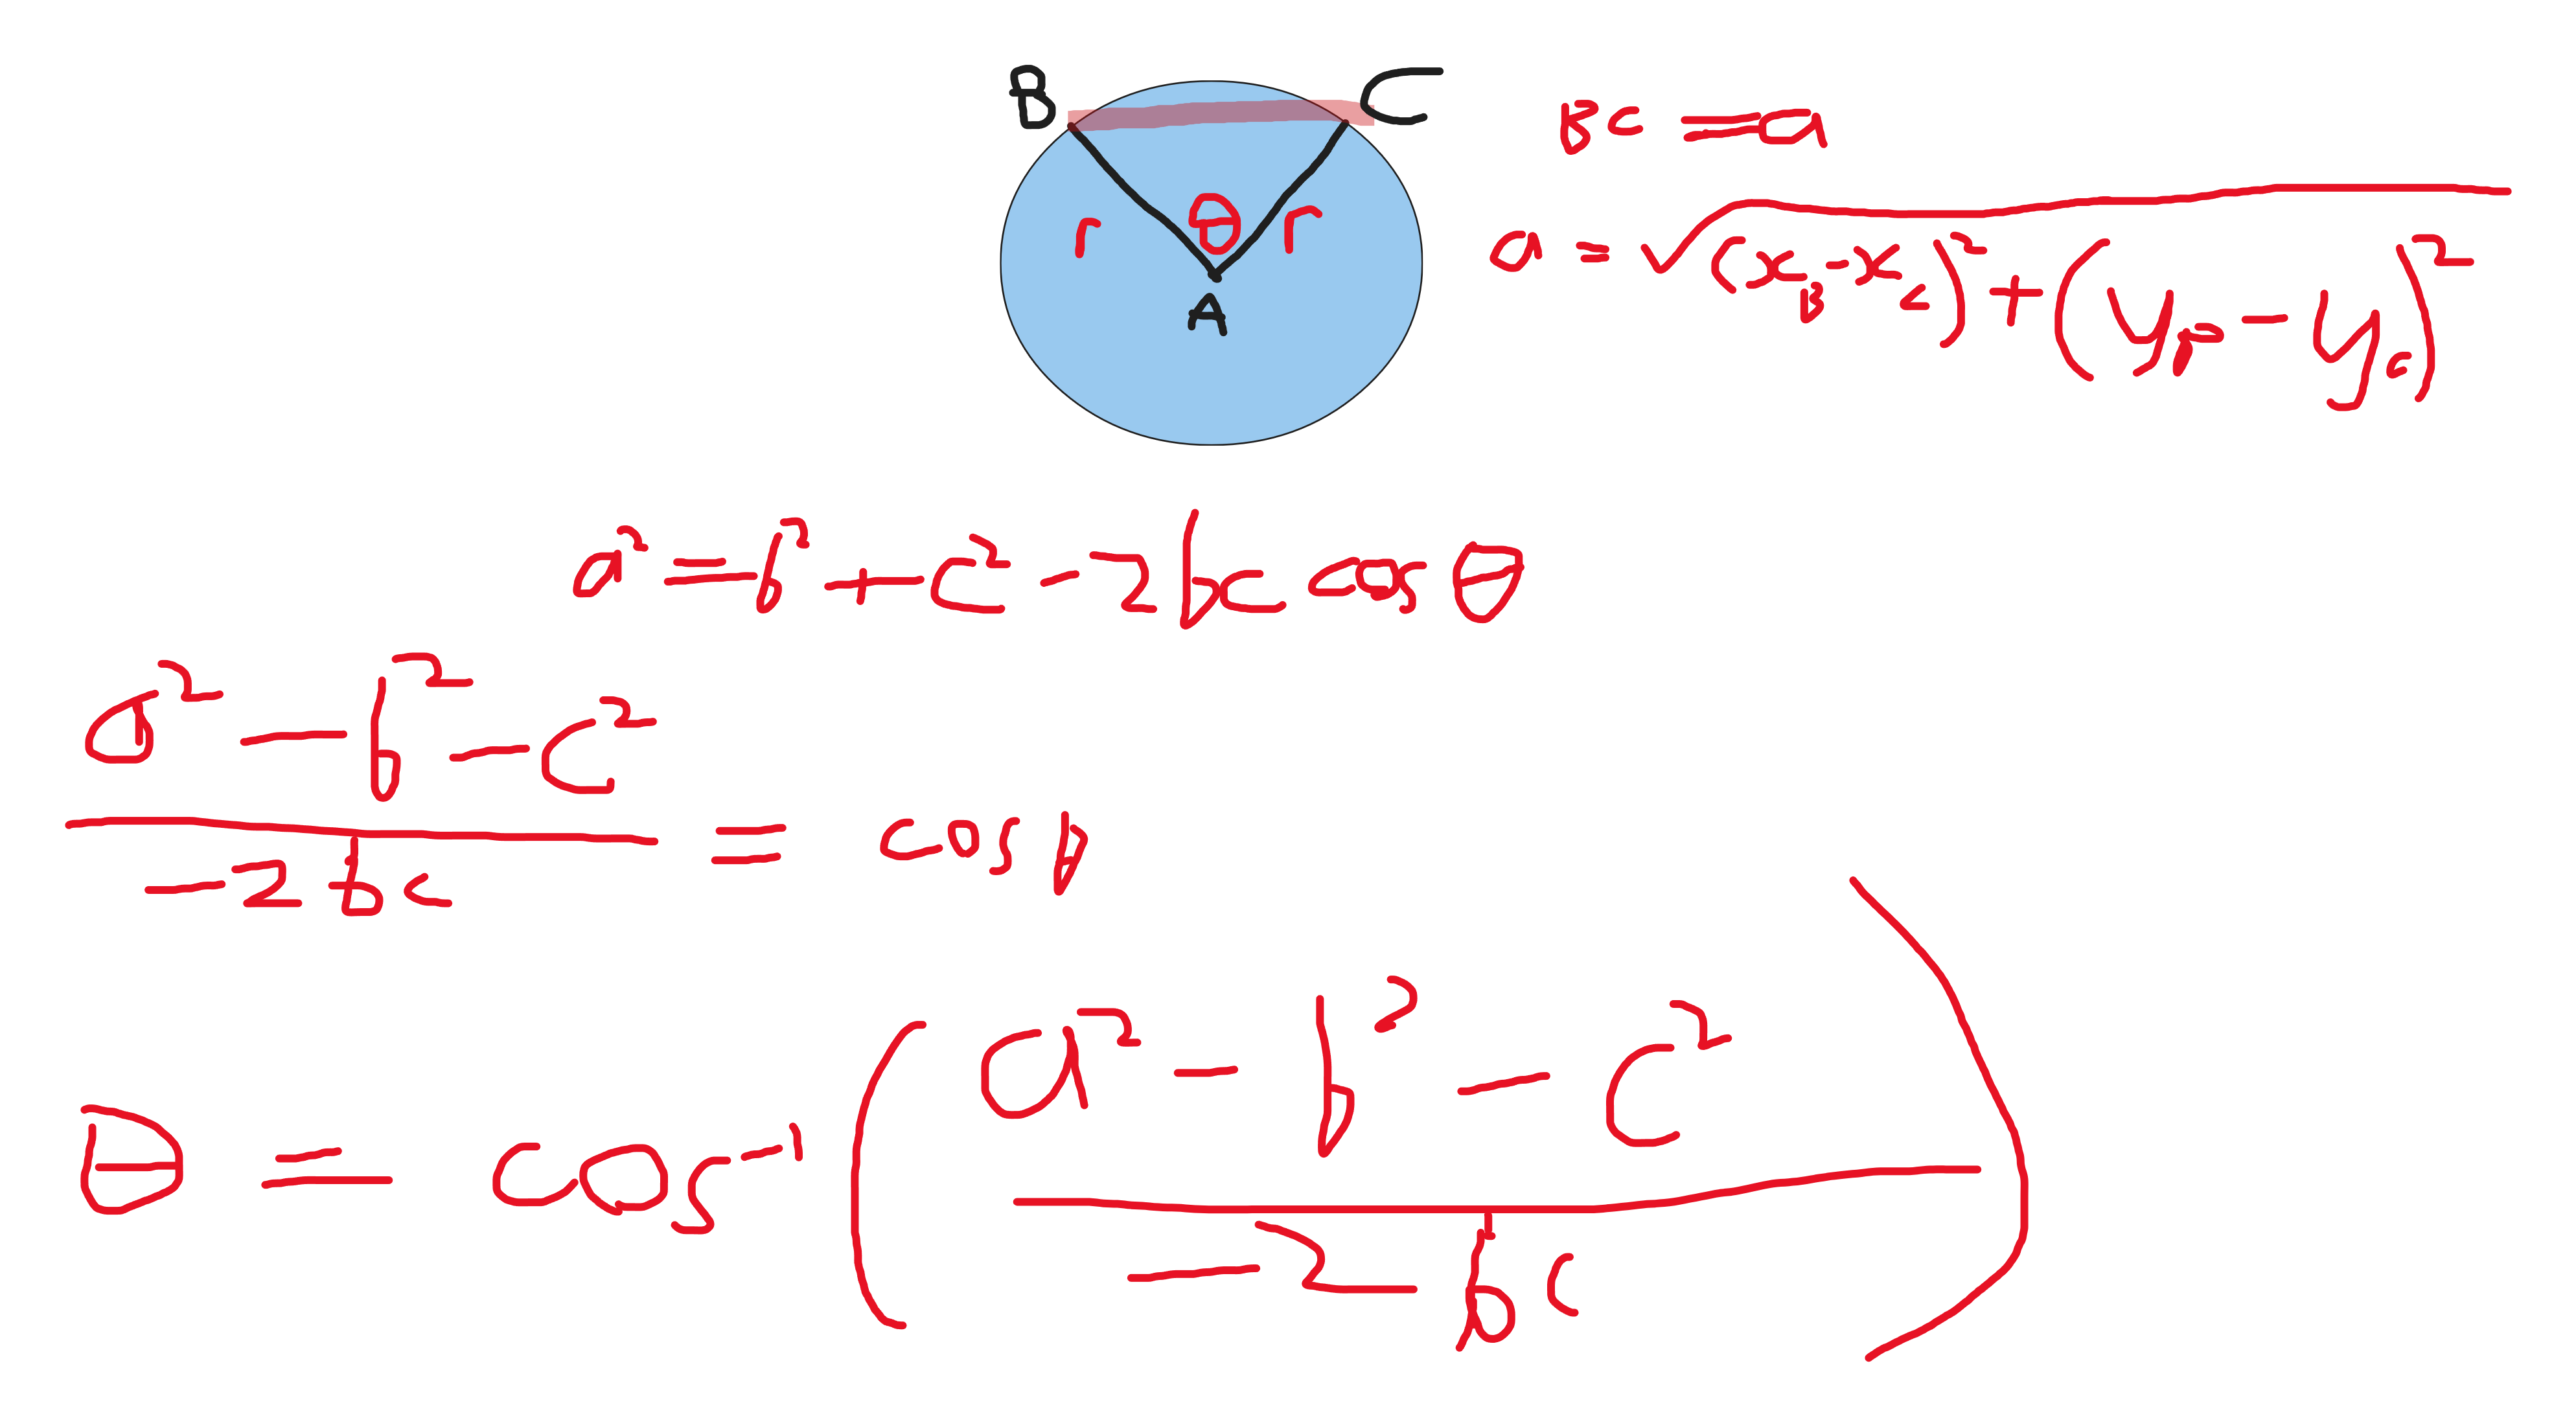 B C
BC = a
r θ r
A
a = √((x_B - x_C)² + (y_B - y_C)²)
a² = b² + c² - 2bc cos θ
(a² - b² - c²) / (-2bc) = cos θ
θ = cos⁻¹((a² - b² - c²) / (-2bc))